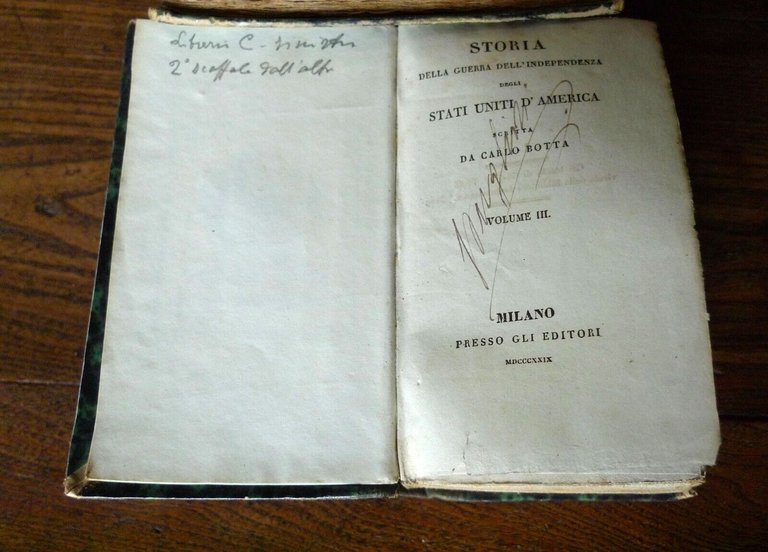 2° scaffale dall'alto
STORIA
DELLA GUERRA DELL'INDEPENDENZA
DEGLI
STATI UNITI D'AMERICA
SCRITTA
DA CARLO BOTTA
VOLUME III.
MILANO
PRESSO GLI EDITORI
MDCCCXXIX